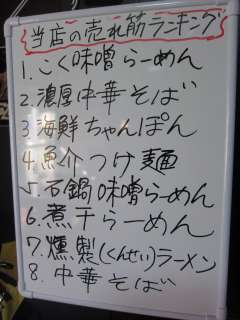 当店の売れ筋ランキング
1.こく味噌らーめん
2.濃厚中華そば
3海鮮ちゃんぽん
4.魚介つけ麺
5.石鍋味噌らーめん
6.煮干らーめん
7.燻製(くんせい)ラーメン
8.中華そば